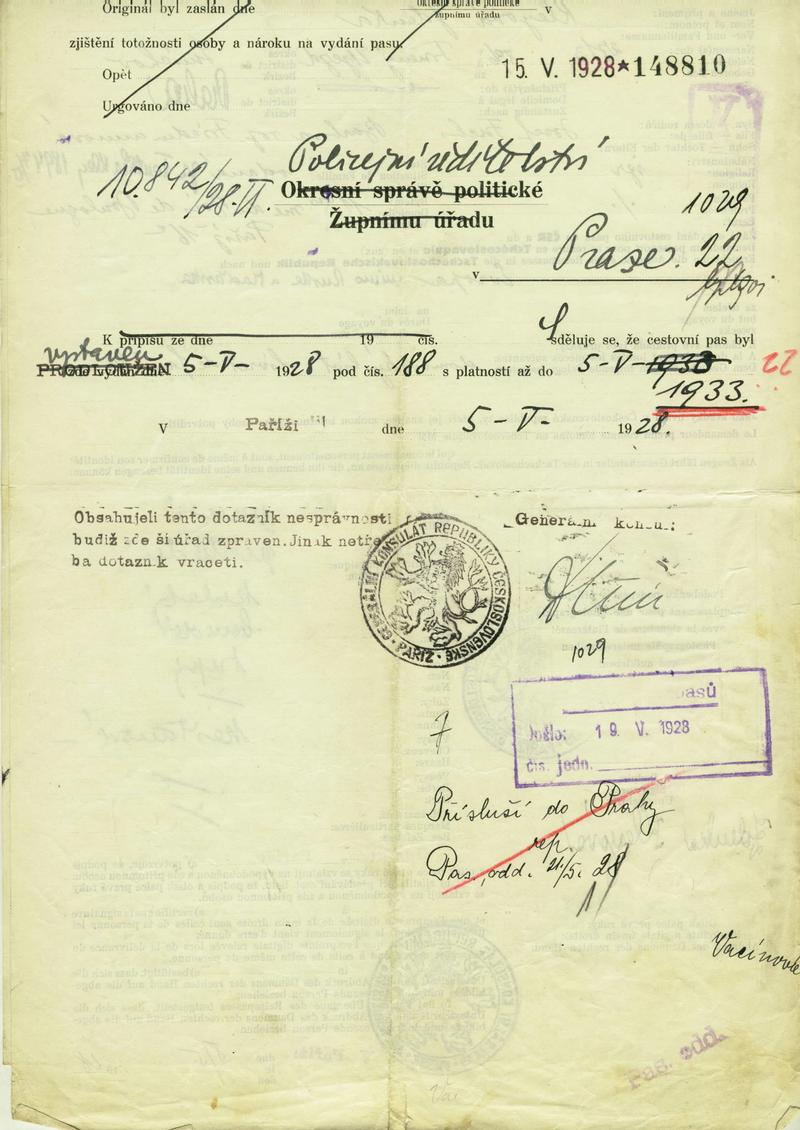 Originál byl zaslán dne okresní správě politické v
župnímu úřadu
zjištění totožnosti osoby a nároku na vydání pasu.
Opět
Urgováno dne
15. V. 1928*148810
Policejní ředitelství
10.842/28-II.
Okresní správě politické
Župnímu úřadu
1029
v Praze. 22
K přípisu ze dne 19 čís. Sděluje se, že cestovní pas byl
vystaven
PRODLOUŽEN 5-V- 1928 pod čís. 188 s platností až do 5-V-1938 22
1933.
V Paříži dne 5-V- 1928.
Obsahujeli tento dotazník nesprávnosti
budiž zdejší úřad zpraven. Jinak netře
ba dotazník vraceti.
Generální konsul:
GENERÁLNÍ KONSULÁT REPUBLIKY ČESKOSLOVENSKÉ
· PAŘÍŽ ·
1029
pasů
Došlo: 19. V. 1928
čís. jedn.
7
Přísluší do Prahy
rep.
Pas. odd. 21/5. 28
Vacínová
Pas. odd.